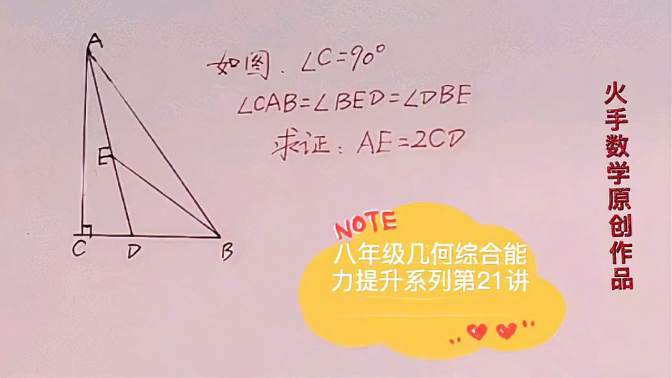 如图、∠C=90°
∠CAB=∠BED=∠DBE
求证：AE=2CD
A
E
C
D
B
火手数学原创作品
NOTE
八年级几何综合能
力提升系列第21讲